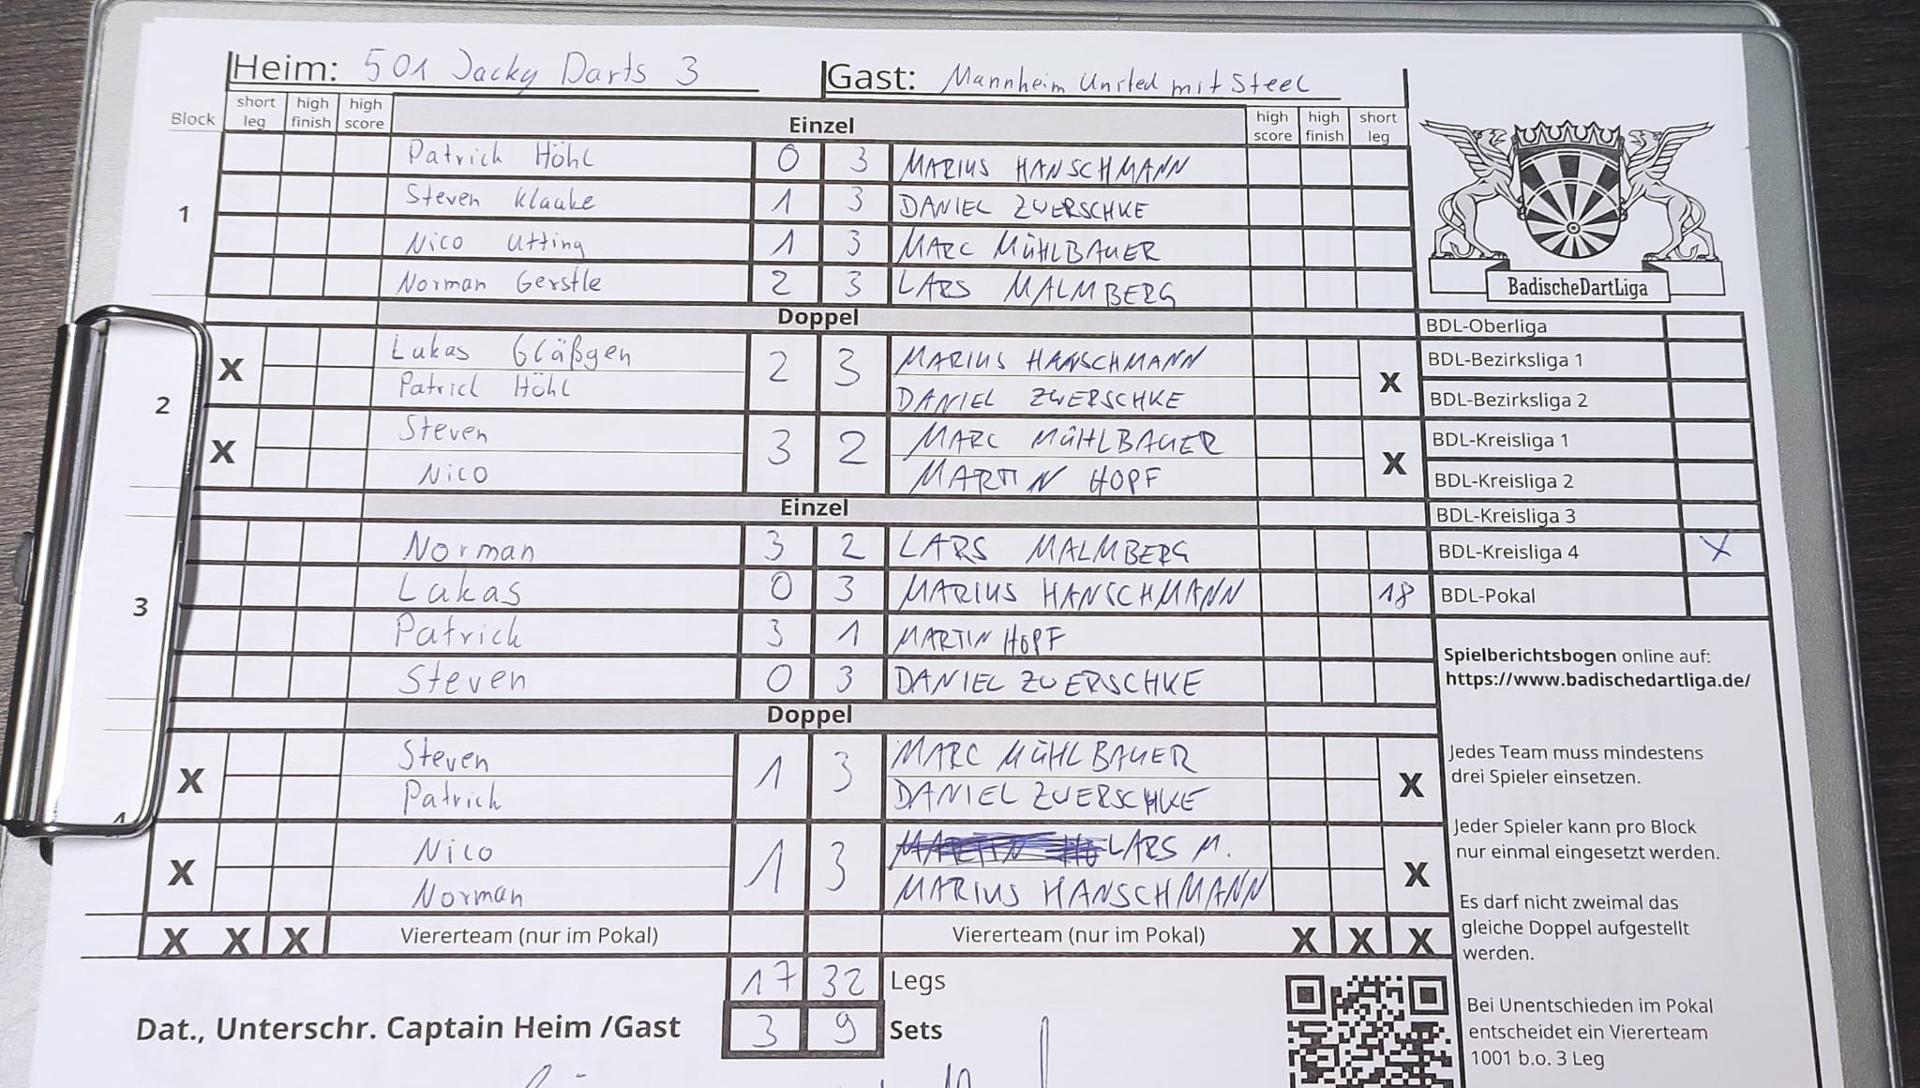 Heim: 501 Jacky Darts 3 Gast: Mannheim United mit Steel
Block short leg high finish high score Einzel high score high finish short leg
Patrick Höhl 0 3 MARIUS HANSCHMANN
Steven Klauke 1 3 DANIEL ZWERSCHKE
1
Nico Utting 1 3 MARC MÜHLBAUER
Norman Gerstle 2 3 LARS MALMBERG
BadischeDartLiga
Doppel
BDL-Oberliga
Lukas Gläßgen
X 2 3 X
Patrick Höhl
MARIUS HANSCHMANN
DANIEL ZWERSCHKE
BDL-Bezirksliga 1
BDL-Bezirksliga 2
2
Steven
X 3 2 X
Nico
MARC MÜHLBAUER
MARTIN HOPF
BDL-Kreisliga 1
BDL-Kreisliga 2
Einzel
BDL-Kreisliga 3
Norman 3 2 LARS MALMBERG
BDL-Kreisliga 4 X
3
Lukas 0 3 MARIUS HANSCHMANN 18
BDL-Pokal
Patrick 3 1 MARTIN HOPF
Steven 0 3 DANIEL ZWERSCHKE
Spielberichtsbogen online auf:
https://www.badischedartliga.de/
Doppel
Steven
X 1 3 X
Patrick
MARC MÜHLBAUER
DANIEL ZWERSCHKE
Jedes Team muss mindestens
drei Spieler einsetzen.
Nico
X 1 3 X
Norman
LARS M.
MARIUS HANSCHMANN
Jeder Spieler kann pro Block
nur einmal eingesetzt werden.
X X X Viererteam (nur im Pokal) Viererteam (nur im Pokal) X X X
Es darf nicht zweimal das
gleiche Doppel aufgestellt
werden.
17 32 Legs
Dat., Unterschr. Captain Heim /Gast 3 9 Sets
Bei Unentschieden im Pokal
entscheidet ein Viererteam
1001 b.o. 3 Leg